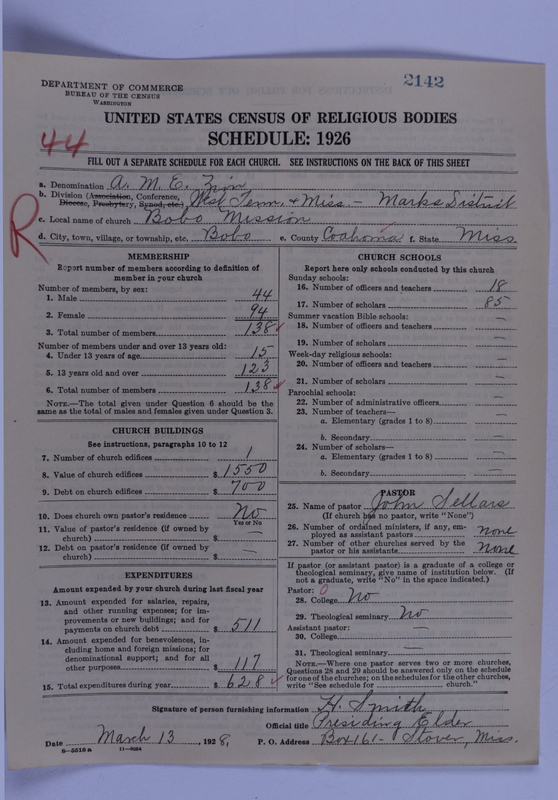 2142
DEPARTMENT OF COMMERCE
BUREAU OF THE CENSUS
WASHINGTON
UNITED STATES CENSUS OF RELIGIOUS BODIES
SCHEDULE: 1926
44
FILL OUT A SEPARATE SCHEDULE FOR EACH CHURCH. SEE INSTRUCTIONS ON THE BACK OF THIS SHEET
R
a. Denomination A. M. E. Zion
b. Division (Association, Conference, Diocese, Presbytery, Synod, etc.) West Tenn. & Miss. — Marks District
c. Local name of church Bobo Mission
d. City, town, village, or township, etc. Bobo e. County Coahoma f. State Miss.
MEMBERSHIP
Report number of members according to definition of
member in your church
Number of members, by sex:
1. Male 44
2. Female 94
3. Total number of members 138
Number of members under and over 13 years old:
4. Under 13 years of age 15
5. 13 years old and over 123
6. Total number of members 138
NOTE.—The total given under Question 6 should be the
same as the total of males and females given under Question 3.
CHURCH BUILDINGS
See instructions, paragraphs 10 to 12
7. Number of church edifices 1
8. Value of church edifices $ 1550
9. Debt on church edifices $ 700
10. Does church own pastor's residence No
Yes or No
11. Value of pastor's residence (if owned by
church) $ —
12. Debt on pastor's residence (if owned by
church) $ —
EXPENDITURES
Amount expended by your church during last fiscal year
13. Amount expended for salaries, repairs,
and other running expenses; for im-
provements or new buildings; and for
payments on church debt $ 511
14. Amount expended for benevolences, in-
cluding home and foreign missions; for
denominational support; and for all
other purposes $ 117
15. Total expenditures during year $ 628
CHURCH SCHOOLS
Report here only schools conducted by this church
Sunday schools:
16. Number of officers and teachers 18
17. Number of scholars 85
Summer vacation Bible schools:
18. Number of officers and teachers —
19. Number of scholars —
Week-day religious schools:
20. Number of officers and teachers —
21. Number of scholars —
Parochial schools:
22. Number of administrative officers —
23. Number of teachers—
a. Elementary (grades 1 to 8) —
b. Secondary —
24. Number of scholars—
a. Elementary (grades 1 to 8) —
b. Secondary —
PASTOR
25. Name of pastor John Sellars
(If church has no pastor, write "None")
26. Number of ordained ministers, if any, em-
ployed as assistant pastors none
27. Number of other churches served by the
pastor or his assistants None
If pastor (or assistant pastor) is a graduate of a college or
theological seminary, give name of institution below. (If
not a graduate, write "No" in the space indicated.)
Pastor: 0
28. College No
29. Theological seminary No
Assistant pastor:
30. College —
31. Theological seminary —
NOTE.—Where one pastor serves two or more churches,
Questions 28 and 29 should be answered only on the schedule
for one of the churches; on the schedules for the other churches,
write "See schedule for ........ church."
Signature of person furnishing information H. Smith
Official title Presiding Elder
Date March 13, 1928, P. O. Address Box 161 - Stover, Miss.
8-5518 a 11-9224